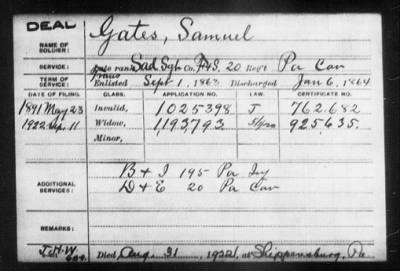 DEAL
Gates, Samuel
NAME OF SOLDIER:
SERVICE:
Late rank Sad Sgt Co. F&S. 20 Reg't Pa Cav
TERM OF SERVICE:
Enlisted Sept 1, 1863 Discharged Jan 6, 1864
DATE OF FILING. CLASS. APPLICATION NO. LAW. CERTIFICATE NO.
1891 May 23 Invalid, 1025398 J 762.682
1922 Sep. 11 Widow, 1193793 925635.
Minor,
ADDITIONAL SERVICES:
B & I 195 Pa Inf
D & E 20 Pa Cav
REMARKS:
J.H.W.
Died Aug. 31, 1922, at Shippensburg, Pa